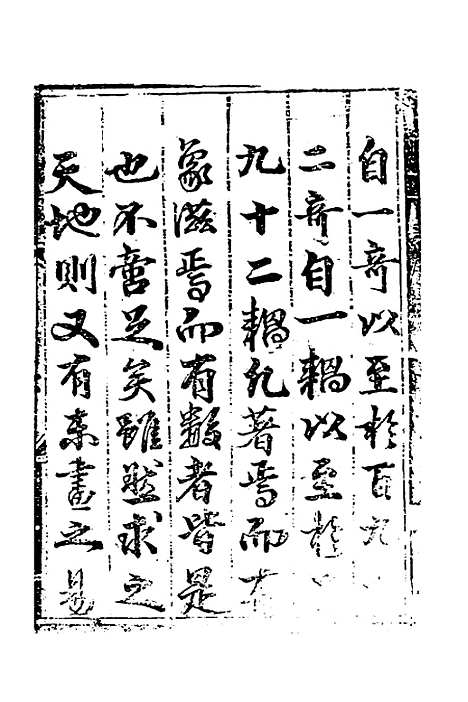 自一奇以至於百九
二奇自一耦以至於
九十二耦兆著焉而
象滋焉而有數者皆是
也不啻足矣雖然求之
天地則又有未畫之易